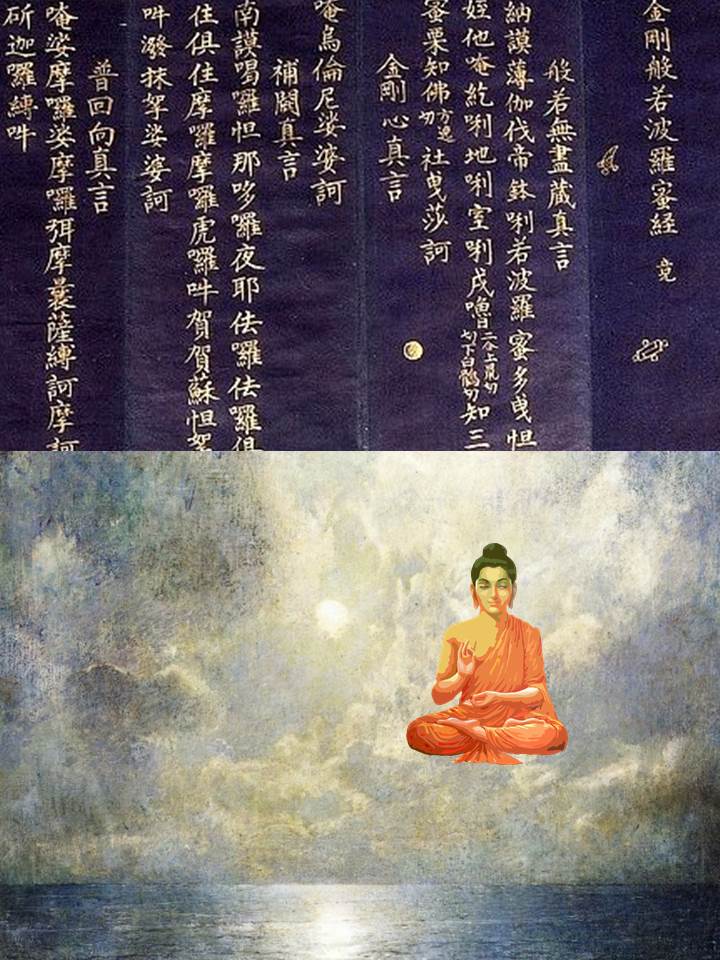 金剛般若波羅蜜經 竟
般若無盡藏真言
納謨薄伽伐帝鉢唎若波羅蜜多曳怛
姪他唵紇唎地唎室唎戍嚕知三
蜜栗知佛社曳莎訶
金剛心真言
唵烏倫尼娑婆訶
補闕真言
南謨喝囉怛那哆囉夜耶佉囉佉囉俱
住俱住摩囉摩囉虎囉吽賀賀蘇怛拏
吽潑抹拏娑婆訶
普回向真言
唵娑摩囉娑摩囉弭摩曩薩縛訶摩訶
斫迦囉縛吽